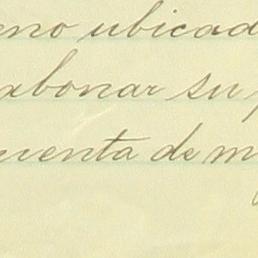 eno ubicad
abonar su p
uenta de m